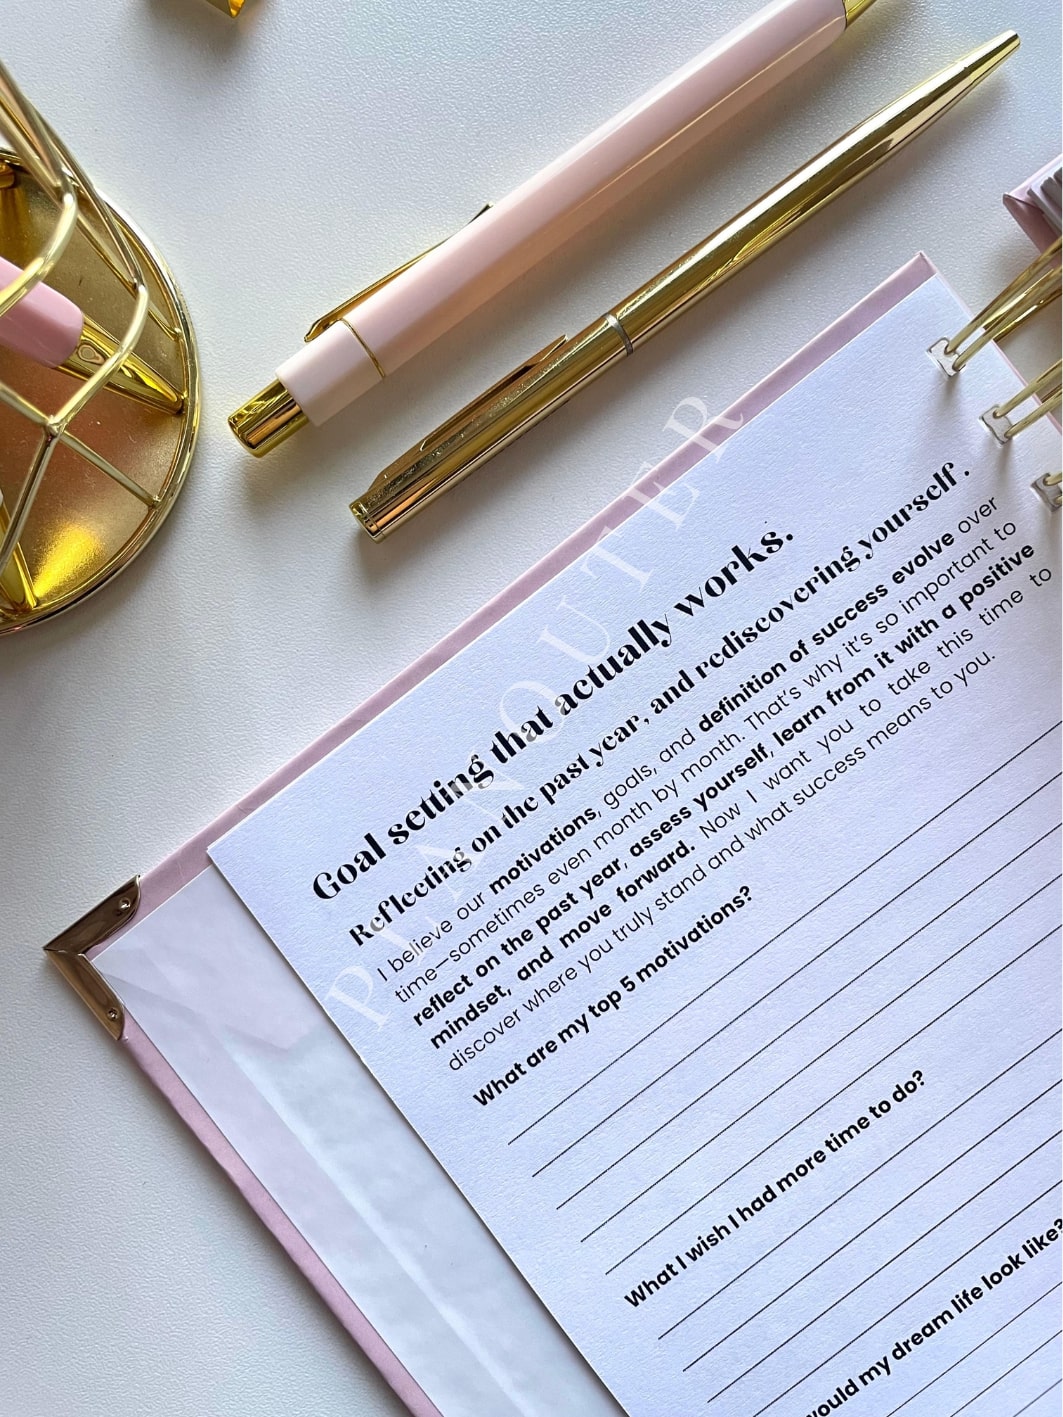 Goal setting that actually works.
Reflecting on the past year, and rediscovering yourself.
I believe our motivations, goals, and definition of success evolve over
time—sometimes even month by month. That's why it's so important to
reflect on the past year, assess yourself, learn from it with a positive
mindset, and move forward. Now I want you to take this time to
discover where you truly stand and what success means to you.
What are my top 5 motivations?
What I wish I had more time to do?
would my dream life look like?
PLANOUTER